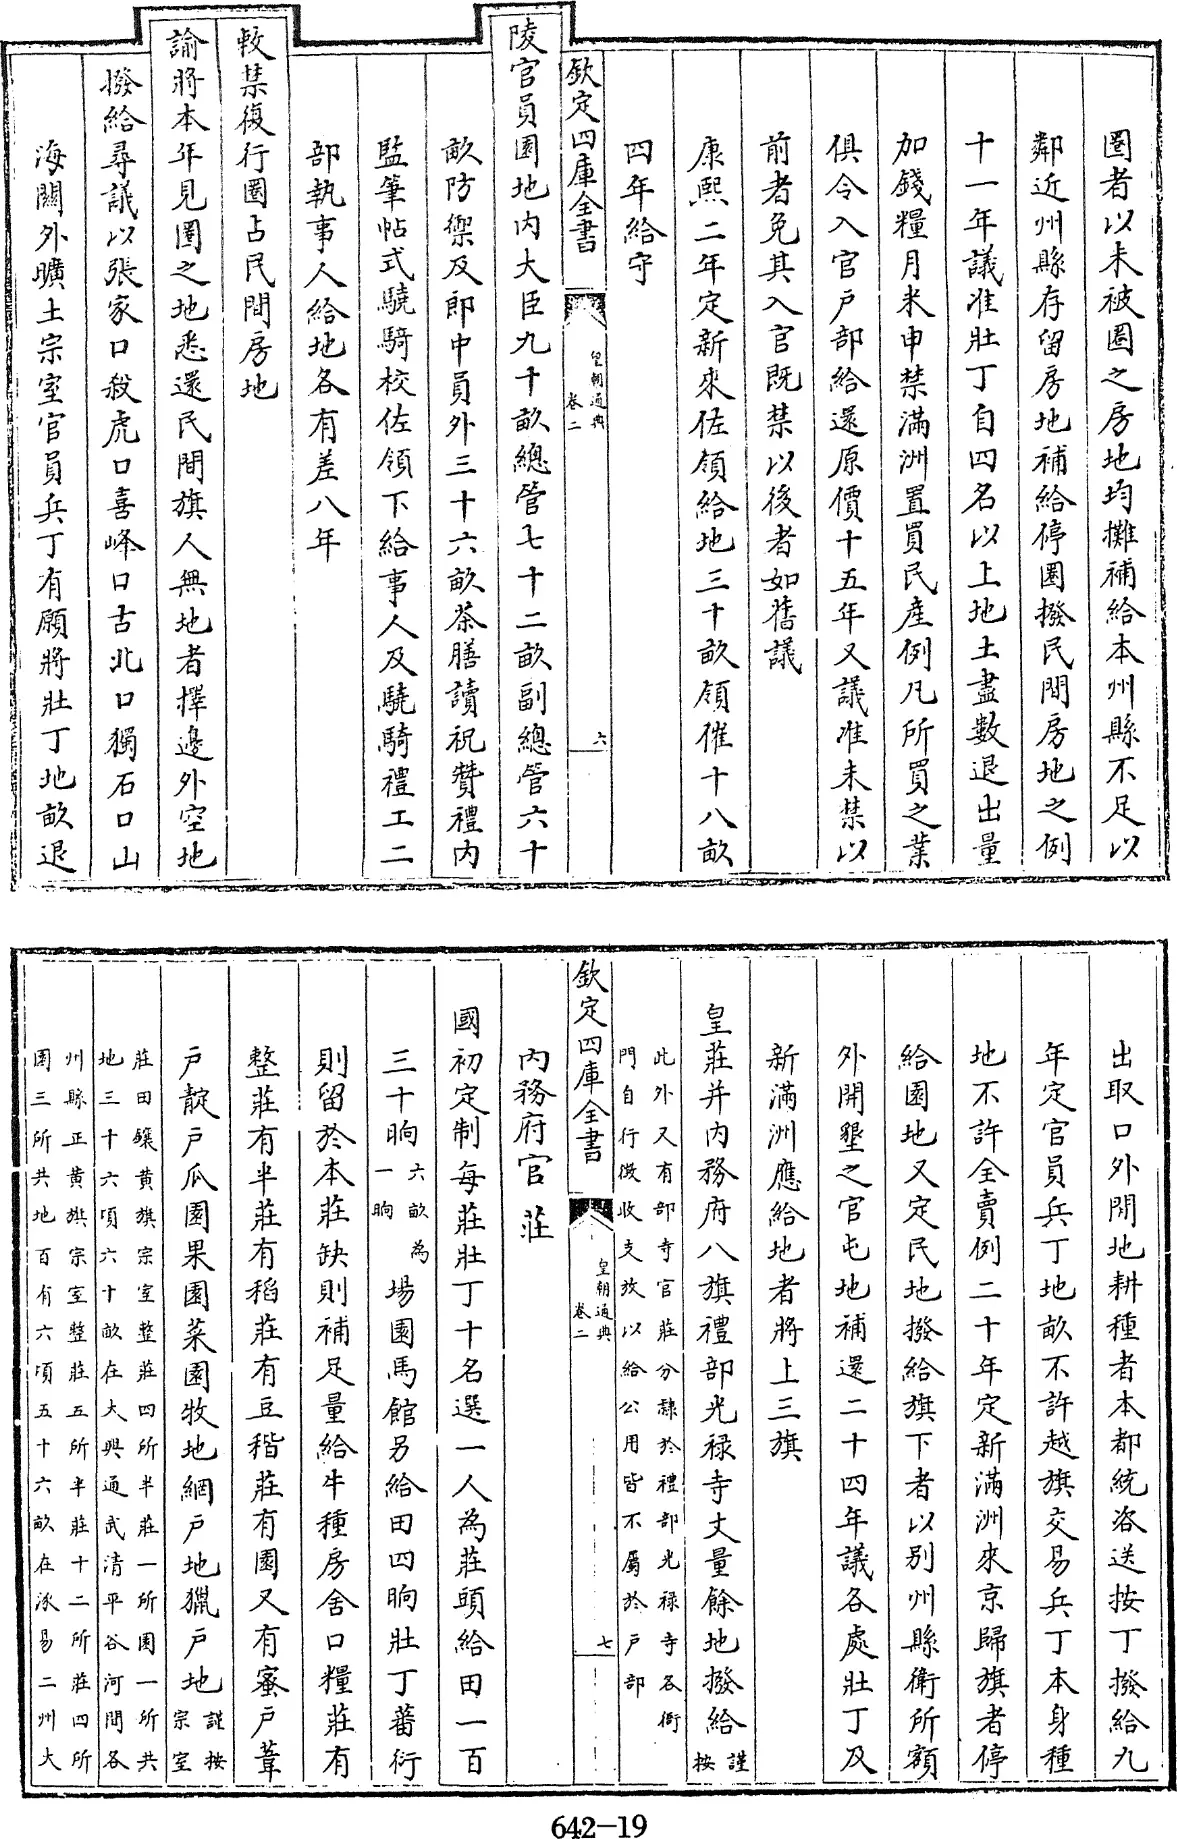 圏者以未被圏之房地均攤補給本州縣不足以
鄰近州縣存留房地補給停圏撥民間房地之例
十一年議准壯丁自四名以上地土盡數退出量
加錢糧月米申禁滿洲置買民産例凡所買之業
俱令入官戶部給還原價十五年又議准未禁以
前者免其入官既禁以後者如舊議
康熙二年定新來佐領給地三十畝領催十八畝
四年給守
欽定四庫全書
皇朝通典
卷二
六
陵官員園地内大臣九十畝總管七十二畝副總管六十
畝防禦及郎中員外三十六畝茶膳讀祝贊禮内
監筆帖式驍騎校佐領下給事人及驍騎禮工二
部執事人給地各有差八年
敕禁復行圏占民間房地
諭將本年見圏之地悉還民間旗人無地者擇邊外空地
撥給尋議以張家口殺虎口喜峰口古北口獨石口山
海關外曠土宗室官員兵丁有願將壯丁地畝退
出取口外閒地耕種者本都統咨送按丁撥給九
年定官員兵丁地畝不許越旗交易兵丁本身種
地不許全賣例二十年定新滿洲來京歸旗者停
給園地又定民地撥給旗下者以别州縣衛所額
外開墾之官屯地補還二十四年議各處壯丁及
新滿洲應給地者將上三旗
皇莊并内務府八旗禮部光禄寺丈量餘地撥給謹按
此外又有部寺官莊分隸於禮部光禄寺各衙
門自行徴收支放以給公用皆不屬於戶部
欽定四庫全書
皇朝通典
卷二
七
内務府官莊
國初定制每莊壯丁十名選一人為莊頭給田一百
三十晌六畝為一晌場園馬館另給田四晌壯丁蕃衍
則留於本莊缺則補足量給牛種房舍口糧莊有
整莊有半莊有稻莊有豆稭莊有園又有蜜戶葦
戶靛戶瓜園果園菜園牧地網戶地獵戶地謹按宗室
莊田鑲黄旗宗室整莊四所半莊一所園一所共
地三十六頃六十畝在大興通武清平谷河間各
州縣正黄旗宗室整莊五所半莊十二所莊四所
園三所共地百有六頃五十六畝在涿易二州大
642-19